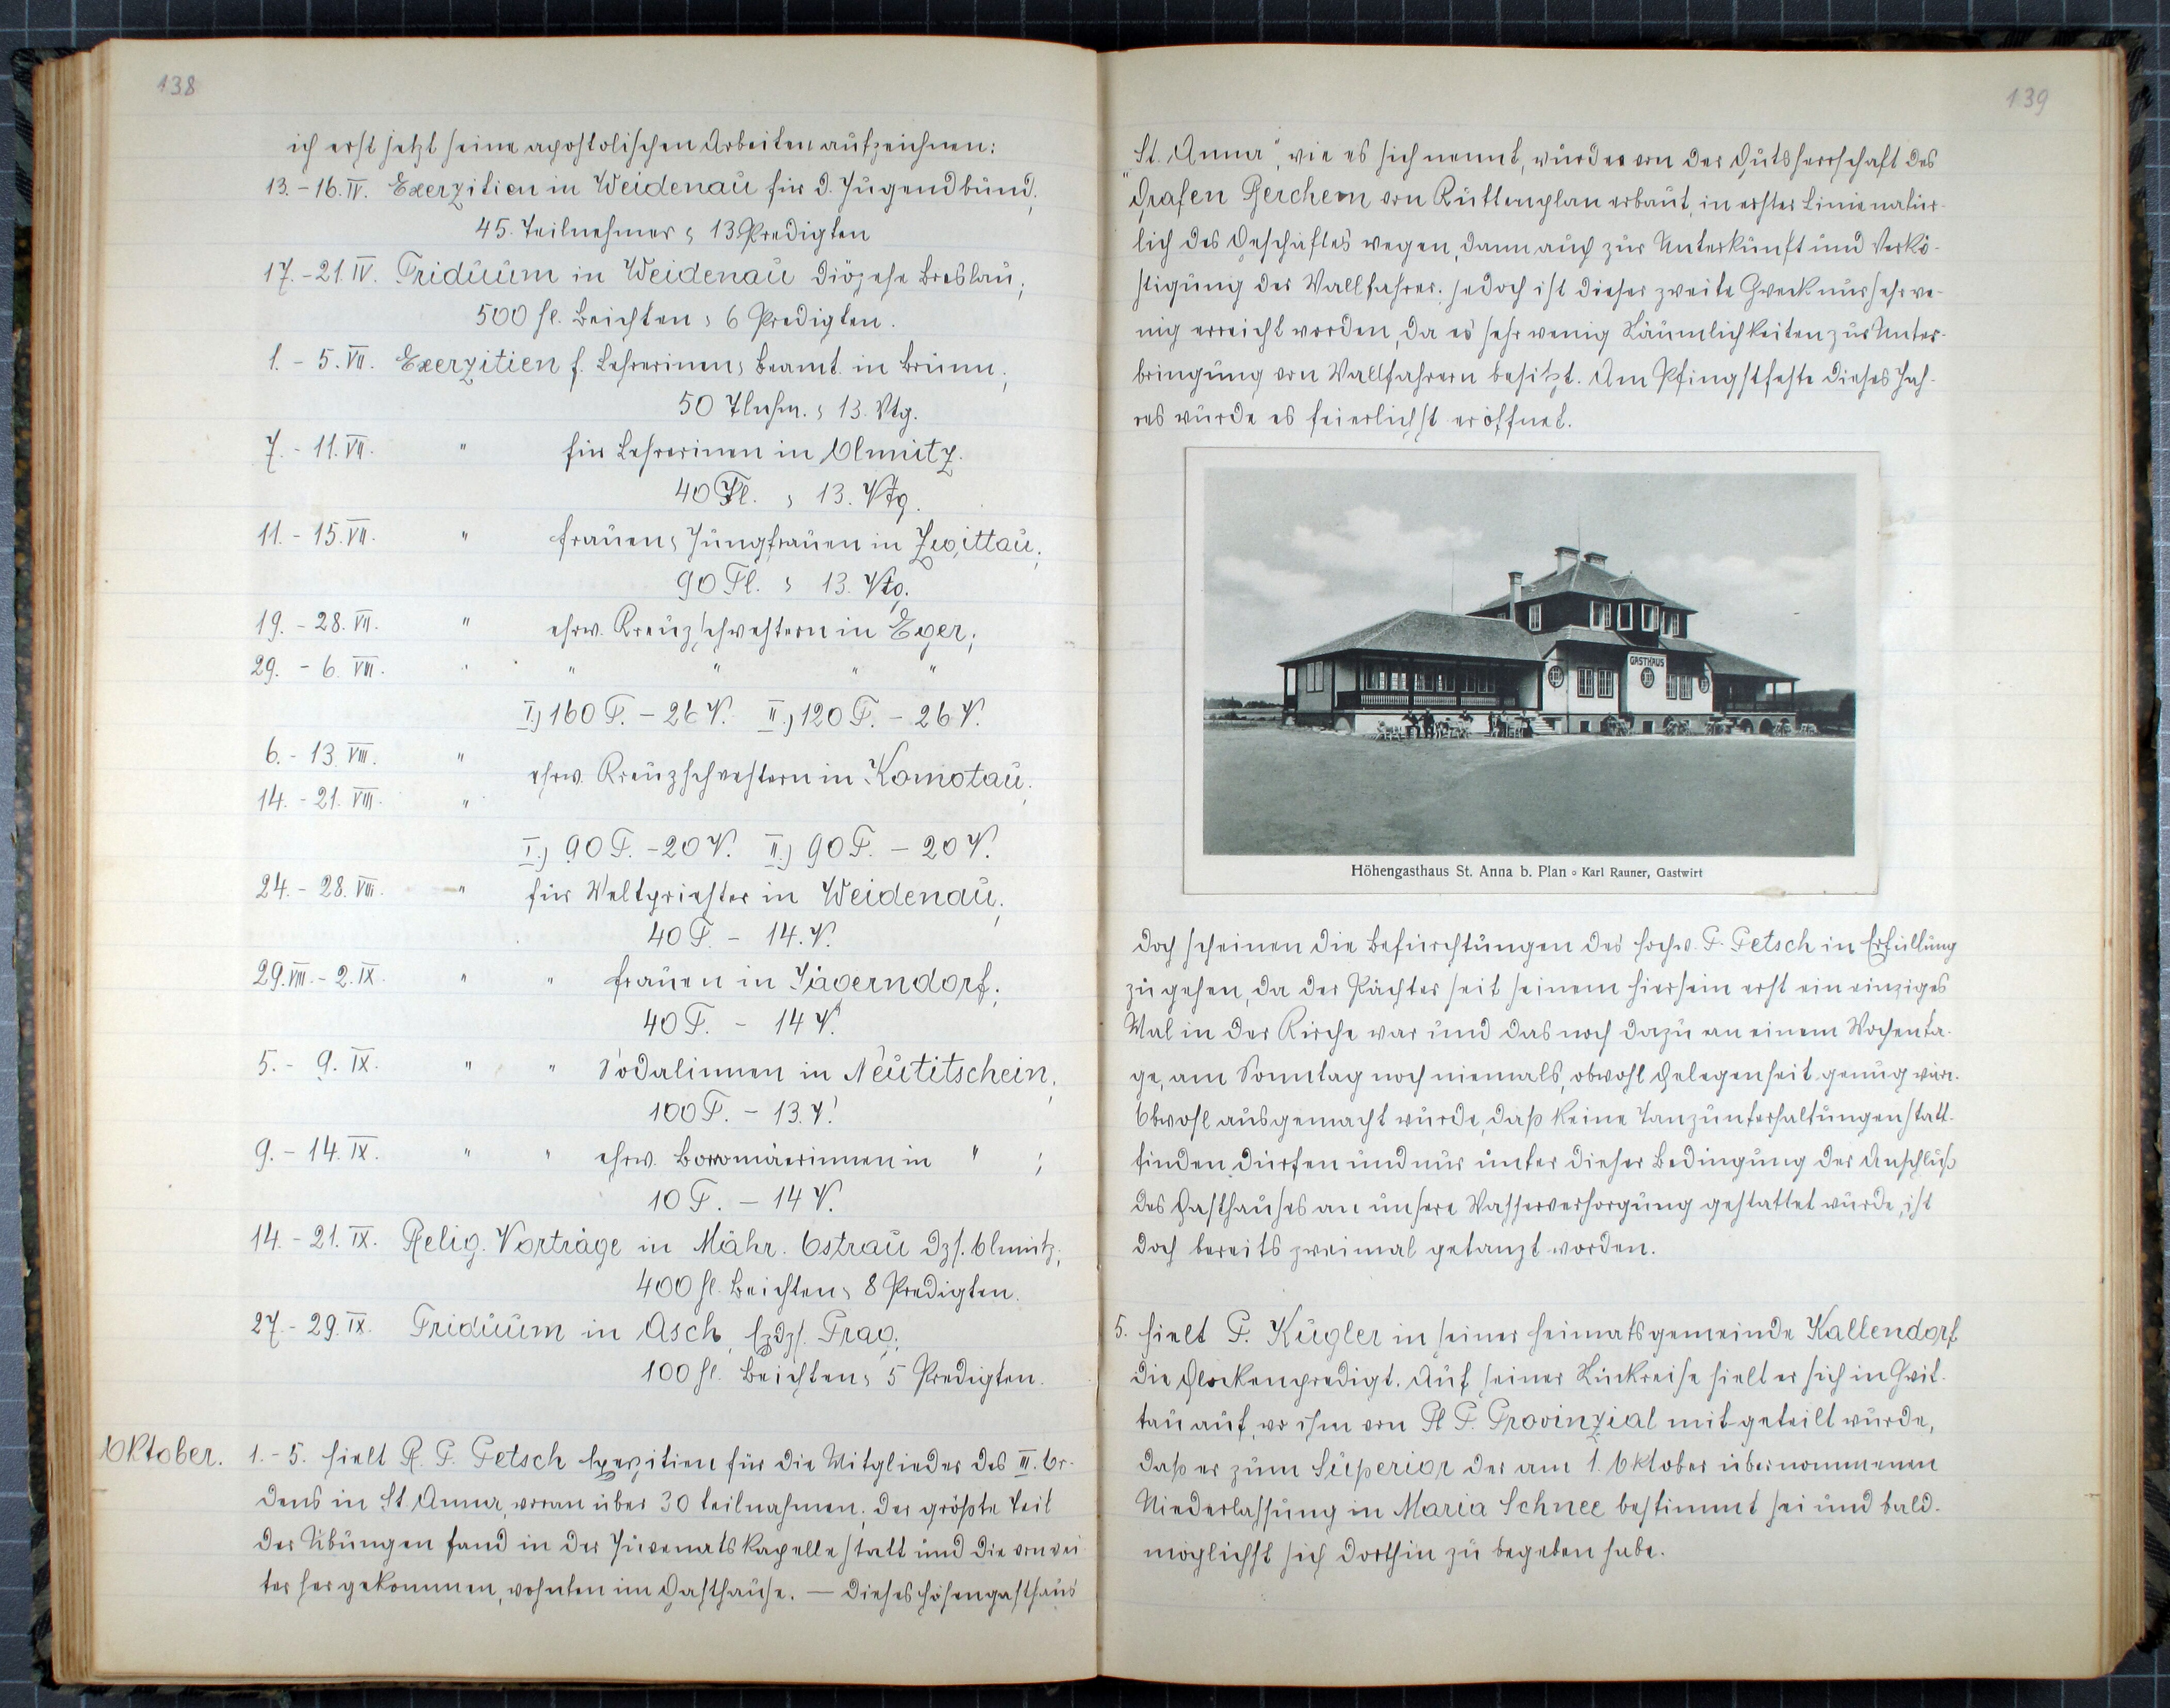 138
ich erst jetzt seine apostolischen Arbeiten aufzeichnen:
13.-16. IV. Exerzitien in Weidenau für d. Jugendbund;
45. Teilnehmer, 13 Predigten
17.-21. IV. Triduum in Weidenau Diözese Breslau;
500 hl. Beichten, 6 Predigten.
1.-5. VII. Exerzitien f. Lehrerinen, Beamt. in Brünn;
50 Tlnhm., 13. Vtg.
7.-11. VII. " für Lehrerinen in Olmütz.
40 Tl., 13. Vtg.
11.-15. VII. " Frauen, Jungfrauen in Zwittau;
90 Tl., 13. Vtg.
19.-28. VII. " ehrw. Kreuzschwestern in Eger;
29.-6. VIII. " " " " "
I.) 160 T. - 26 V. II.) 120 T. - 26 V.
6.-13. VIII. " ehrw. Kreuzschwestern in Komotau;
14.-21. VIII. "
I.) 90 T. - 20 V. II.) 90 T. - 20 V.
24.-28. VIII. " für Weltpriester in Weidenau;
40 T. - 14. V.
29. VIII.-2. IX. " " Frauen in Jägerndorf;
40 T. - 14 V.
5.-9. IX. " " Sodalinnen in Neutitschein;
100 T. - 13. V.
9.-14. IX. " " ehrw. Boromäerinnen in " ;
10 T. - 14 V.
14.-21. IX. Relig. Vorträge in Mähr. Ostrau Dzs. Olmütz;
400 hl. Beichten, 8 Predigten.
27.-29. IX. Triduum in Asch, Ezdzs. Prag;
100 hl. Beichten, 5 Predigten.
Oktober. 1.-5. hielt R. P. Petsch Exerzitien für die Mitglieder des III. Or-
dens in St. Anna, woran über 30 teilnahmen; der größte Teil
der Übungen fand in der Juvenatskapelle statt und die von wei-
ter her gekommen, wohnten im Gasthause. — Dieses Höhengasthaus
139
"St. Anna", wie es sich nennt, wurde von der Gutsherrschaft des
Grafen Berchem von Kuttenplan erbaut, in erster Linie natür-
lich des Geschäftes wegen, dann auch zur Unterkunft und Verkö-
stigung der Wallfahrer. Jedoch ist dieser zweite Zweck nur sehr we-
nig erreicht worden, da es sehr wenig Räumlichkeiten zur Unter-
bringung von Wallfahrern besitzt. Am Pfingstfeste dieses Jah-
res wurde es feierlichst eröffnet.
GASTHAUS
Höhengasthaus St. Anna b. Plan ◦ Karl Rauner, Gastwirt
Doch scheinen die Befürchtungen des hochw. P. Petsch in Erfüllung
zu gehen, da der Pächter seit seinem Hiersein erst ein einziges
Mal in der Kirche war und das noch dazu an einem Wochenta-
ge, am Sonntag noch niemals, obwohl Gelegenheit genug wäre.
Obwohl ausgemacht wurde, daß keine Tanzunterhaltungen statt-
finden dürfen und nur unter dieser Bedingung der Anschluß
des Gasthauses an unsere Wasserversorgung gestattet wurde, ist
doch bereits zweimal getanzt worden.
5. hielt P. Kugler in seiner Heimatsgemeinde Kallendorf
die Glockenpredigt. Auf seiner Rückreise hielt er sich in Zwit-
tau auf, wo ihm von R. P. Provinzial mitgeteilt wurde,
daß er zum Superior der am 1. Oktober übernommenen
Niederlassung in Maria Schnee bestimmt sei und bald-
möglichst sich dorthin zu begeben habe.